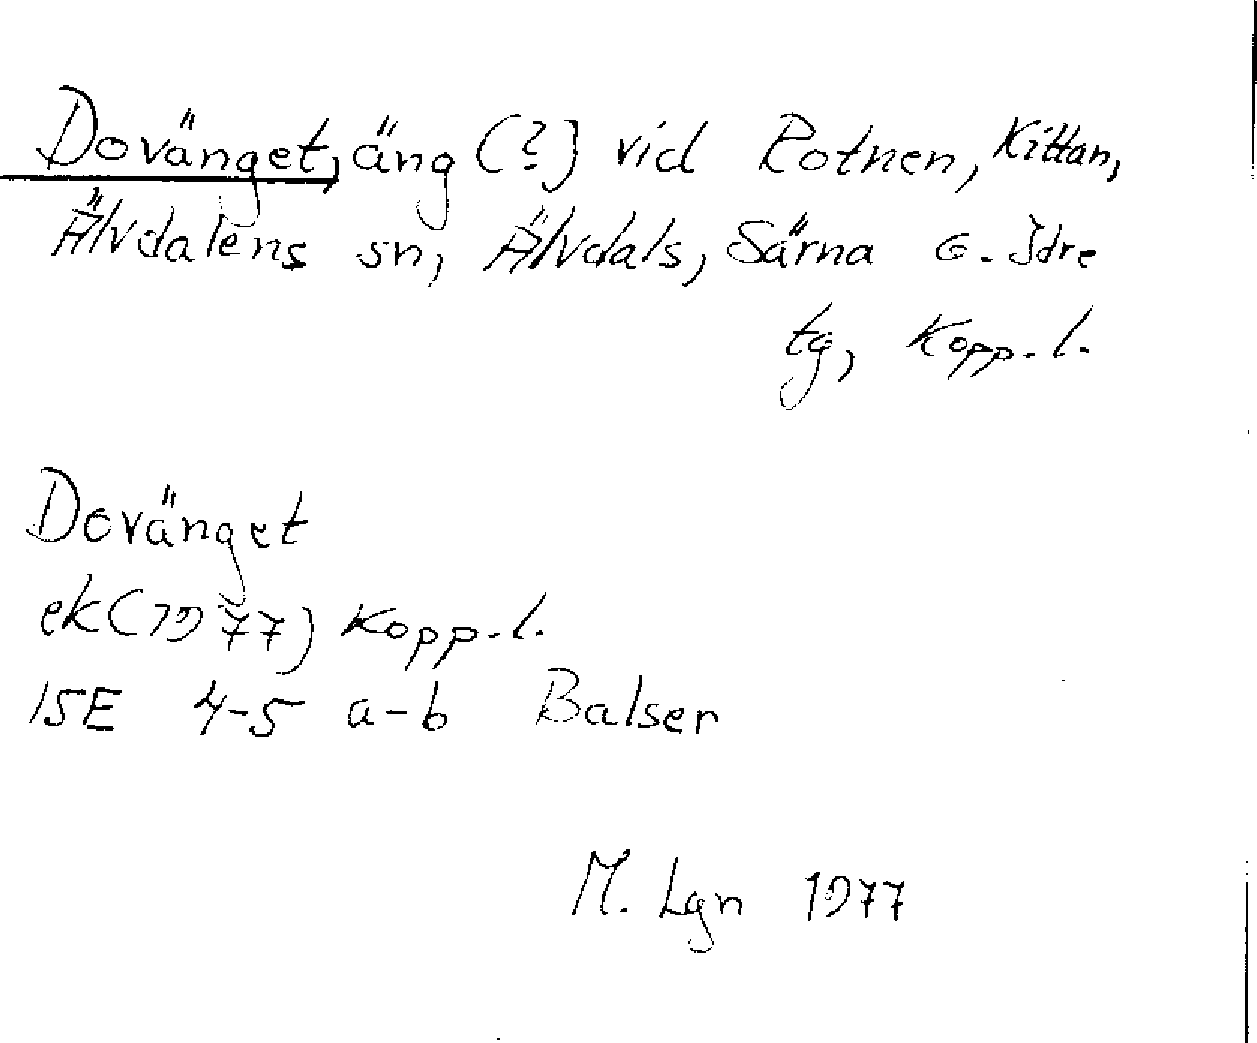 Dovänget, äng (?) vid Rotnen, Kittan,
Älvdalens sn, Älvdals, Särna o. Idre
tg, Kopp. l.
Dovänget
ek (1977) Kopp. l.
15E 4-5 a-b Balser
M. Lgn 1977